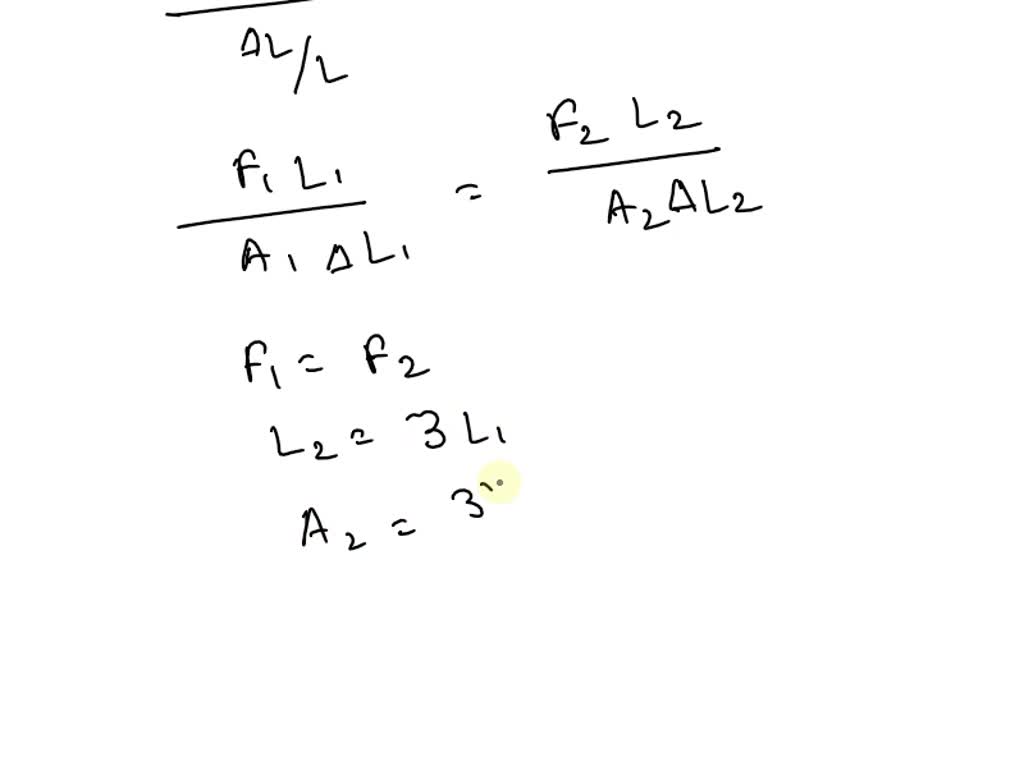 ΔL/L
F₁ L₁ / A₁ ΔL₁ = F₂ L₂ / A₂ ΔL₂
F₁ = F₂
L₂ = 3 L₁
A₂ = 3